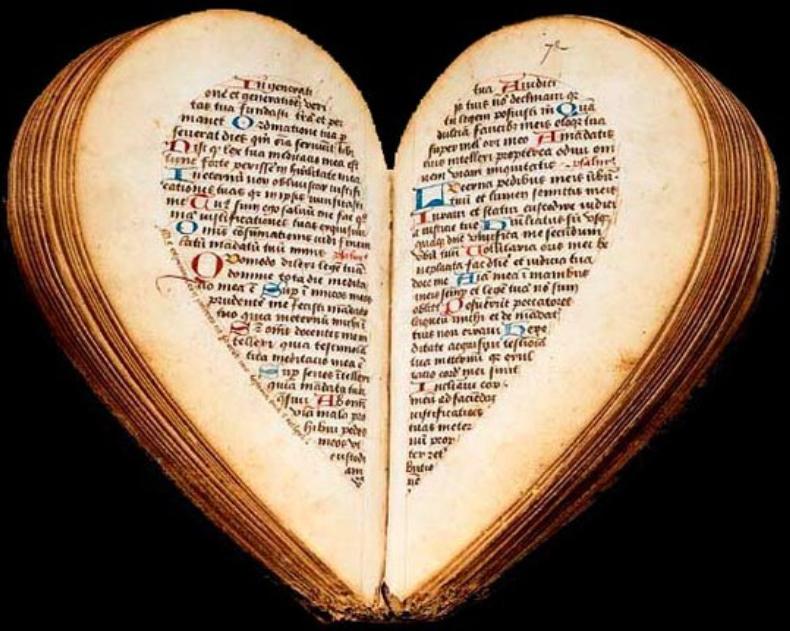 In generati
one et generationē veri
tas tua fundasti trā et per
manet Ordinatione tua p
severat dies qm̄ oīa serviūt tibi
Nisi q lex tua meditatio mea est
tunc forte perissem in hūilitate mea
In eternū non obliviscar iustifi
cationes tuas qr in ipsis vivificasti
me Tuus sum ego salvū me fac qm̄
iustificationes tuas exquisivi
Omnis cōsumationis vidi finem
latū mādatū tuū nimis
Quomodo dilexi legē tuā
domine tota die medita
tio mea ē Sup inimicos meos
prudentē me fecisti mādato
tuo quia in eternū michi ē
Sup omēs docentes me in
tellexi quia testimonia
tua meditatio mea ē
Sup senes ītellexi
quia mādata tua
q̄sivi Ab omi
via mala pro
hibui pedes
meos ut
custodi
am
72
tua A iudici
is tuis nō declinavi qr
tu legem posuisti m̄ Quā
dulcia faucibus meis eloqa tua
super mel ori meo A mādatis
tuis intellexi propterea odivi omnē
viam iniquitatis
Lucerna pedibus meis verbū
tuū et lumen semitis meis
Iuravi et statui custodire iudici
a iustitie tue Humiliatus sū usqz
quaqz dn̄e vivifica me secundum
verbū tuū Voluntaria oris mei be
neplacita fac dn̄e et iudicia tua
doce me Aīa mea ī manibus
meis semp et legē tuā nō sum
oblitus Posuerūt peccatores
laqueū michi et de mādatis
tuis non erravi Here
ditate acquisivi testiōia
tua in eternū qr exul
tatio cordis mei sunt
Inclinavi cor
meū ad faciēdas
iustificatiōes
tuas in eter
nū prop
ter ret
butio
nē